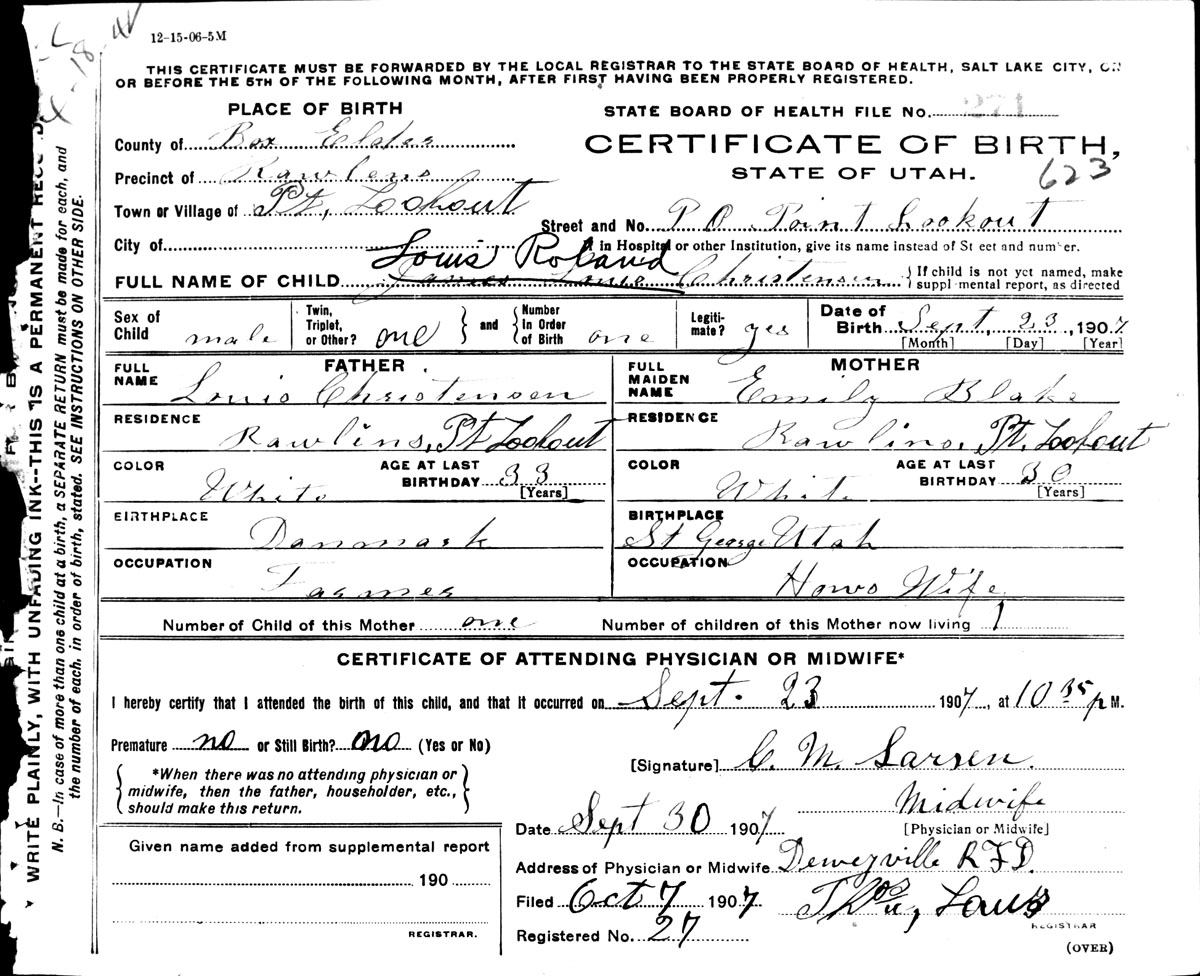 12-15-06-5M
THIS CERTIFICATE MUST BE FORWARDED BY THE LOCAL REGISTRAR TO THE STATE BOARD OF HEALTH, SALT LAKE CITY, ON
OR BEFORE THE 5TH OF THE FOLLOWING MONTH, AFTER FIRST HAVING BEEN PROPERLY REGISTERED.
PLACE OF BIRTH
STATE BOARD OF HEALTH FILE No. 271
County of Box Elder
CERTIFICATE OF BIRTH,
STATE OF UTAH.
623
Precinct of Rawlens
Town or Village of Pt, Lookout
Street and No. P O Point Lookout
City of
If in Hospital or other Institution, give its name instead of Street and number.
Louis Roland
FULL NAME OF CHILD James Christensen
If child is not yet named, make
supplemental report, as directed
Sex of Child male
Twin, Triplet, or Other? one
and
Number In Order of Birth one
Legiti-mate? yes
Date of Birth Sept, 23, 1907
[Month] [Day] [Year]
FATHER
FULL NAME Louis Christensen
RESIDENCE Rawlins, Pt Lookout
COLOR White
AGE AT LAST BIRTHDAY 33
[Years]
BIRTHPLACE Danmark
OCCUPATION Farmer
MOTHER
FULL MAIDEN NAME Emily Blake
RESIDENCE Rawlins, Pt. Lookout
COLOR White
AGE AT LAST BIRTHDAY 30
[Years]
BIRTHPLACE St George Utah
OCCUPATION Hows Wife
Number of Child of this Mother one
Number of children of this Mother now living 1
CERTIFICATE OF ATTENDING PHYSICIAN OR MIDWIFE*
I hereby certify that I attended the birth of this child, and that it occurred on Sept. 23 1907, at 10 35 p M.
Premature no or Still Birth? no (Yes or No)
*When there was no attending physician or
midwife, then the father, householder, etc.,
should make this return.
[Signature] C. M. Larsen.
Midwife
[Physician or Midwife]
Date Sept 30 1907
Address of Physician or Midwife Deweyville RFD.
Filed Oct 7 1907
REGISTRAR
Registered No. 27
(OVER)
Given name added from supplemental report
190
REGISTRAR.
WRITE PLAINLY, WITH UNFADING INK--THIS IS A PERMANENT
N. B.—In case of more than one child at a birth, a SEPARATE RETURN must be made for each, and
the number of each, in order of birth, stated. SEE INSTRUCTIONS ON OTHER SIDE.